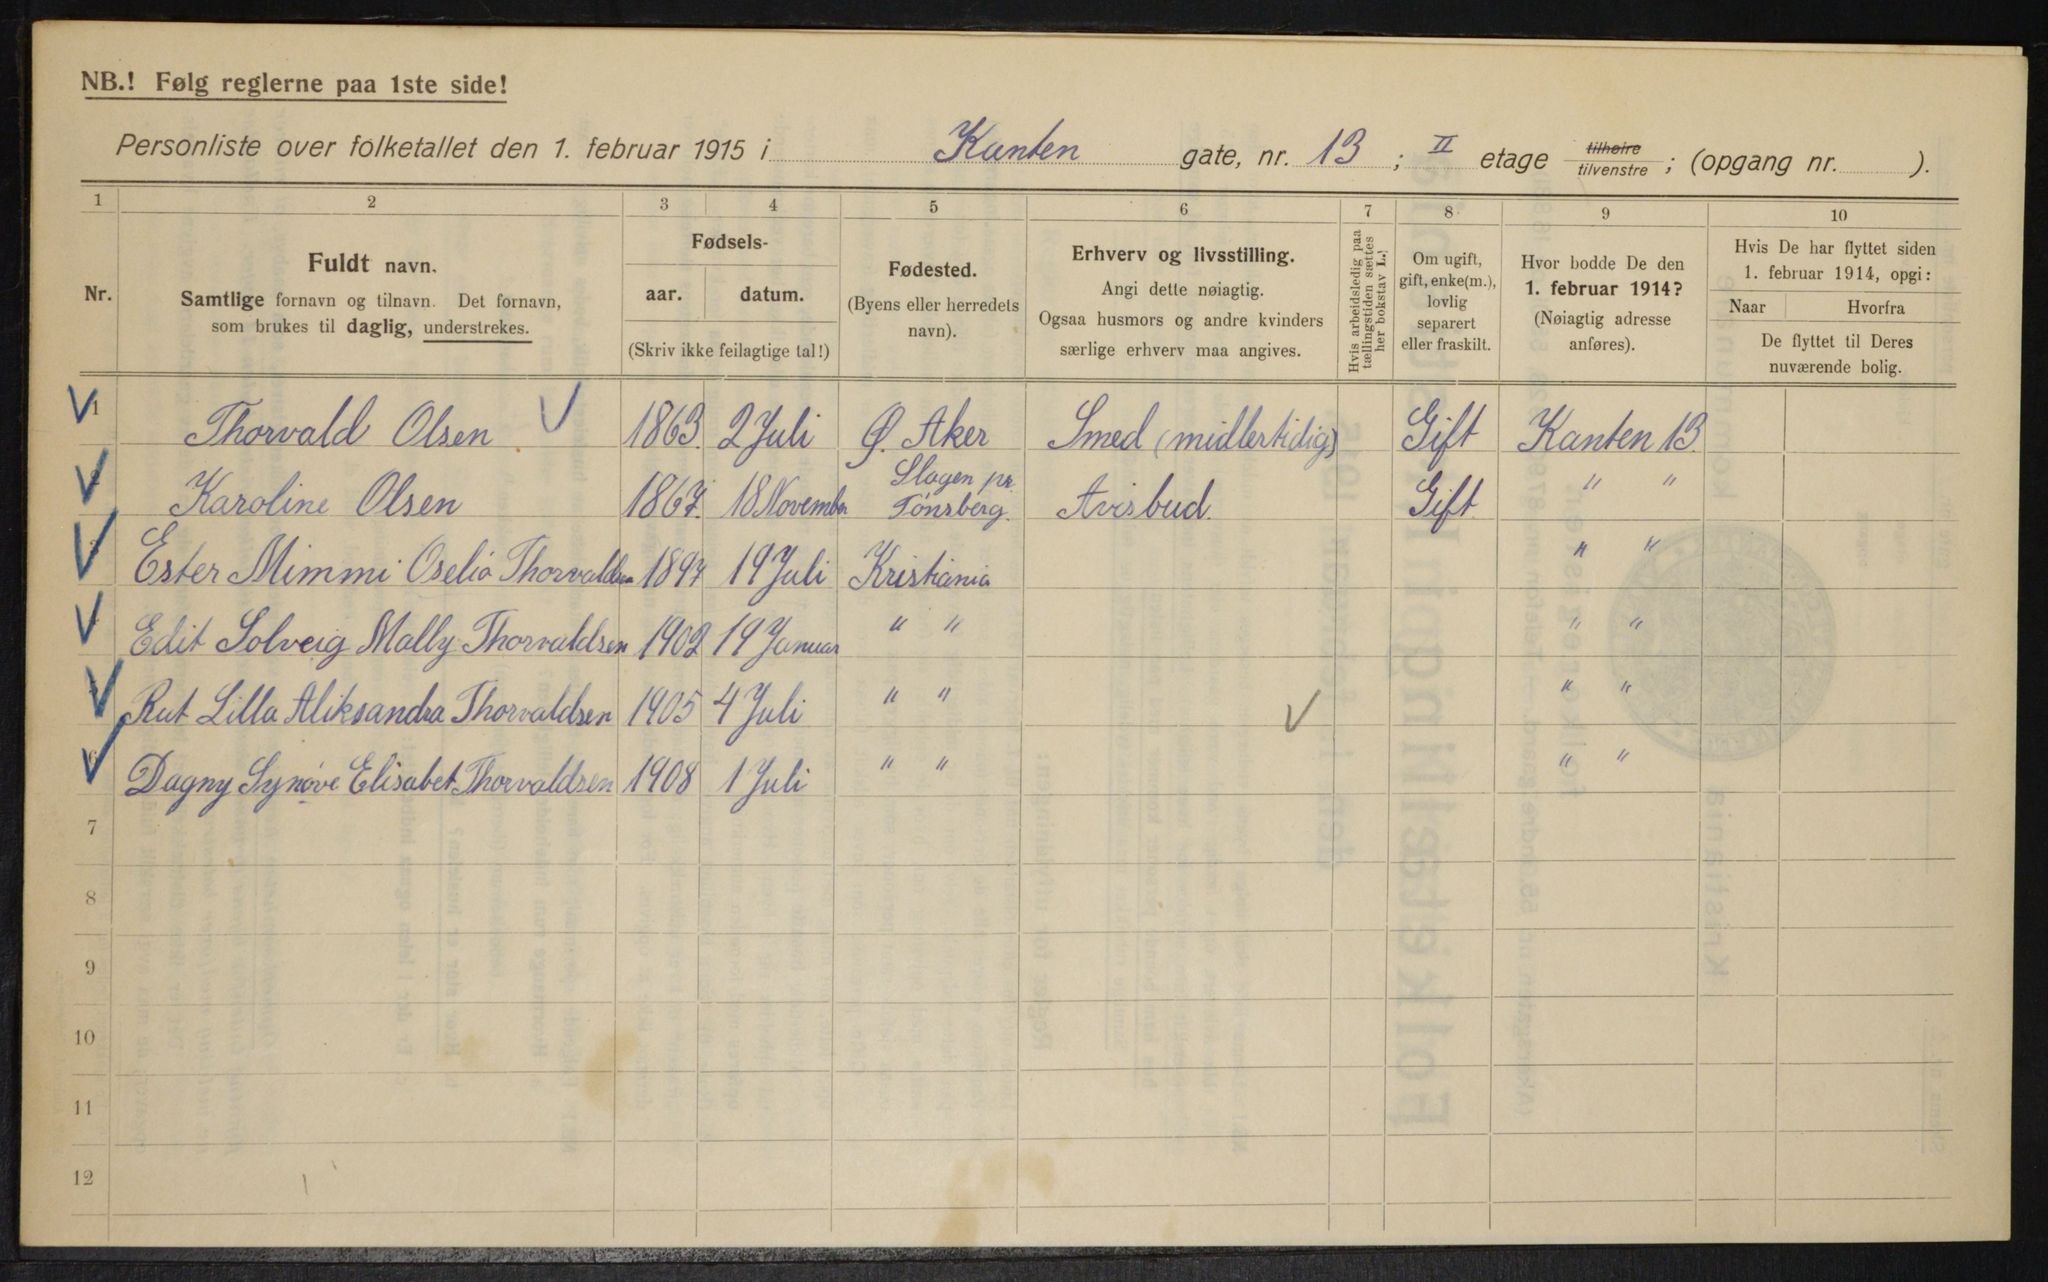 NB.! Følg reglerne paa 1ste side!
Personliste over folketallet den 1. februar 1915 i Kanten gate, nr. 13; II etage tilhøire tilvenstre; (opgang nr. ).
1 2 3 4 5 6 7 8 9 10
Nr.
Fuldt navn.
Samtlige fornavn og tilnavn. Det fornavn,
som brukes til daglig, understrekes.
Fødsels-
aar. datum.
(Skriv ikke feilagtige tal!)
Fødested.
(Byens eller herredets
navn).
Erhverv og livsstilling.
Angi dette nøiagtig.
Ogsaa husmors og andre kvinders
særlige erhverv maa angives.
Hvis arbeidsledig paa
tællingstiden sættes
her bokstav L.!
Om ugift,
gift, enke(m.),
lovlig
separert
eller fraskilt.
Hvor bodde De den
1. februar 1914?
(Nøiagtig adresse
anføres).
Hvis De har flyttet siden
1. februar 1914, opgi:
Naar Hvorfra
De flyttet til Deres
nuværende bolig.
1 Thorvald Olsen 1863. 2 Juli Ø. Aker Smed (midlertidig) Gift Kanten 13.
2 Karoline Olsen 1867. 18 November Slagen pr. Tønsberg. Avisbud. Gift " "
3 Ester Mimmi Oselia Thorvaldsen 1897 19 Juli Kristiania " "
4 Edit Solveig Mally Thorvaldsen 1902 19 Januar " " " "
5 Rut Lilla Aliksandra Thorvaldsen 1905 4 Juli " " " "
6 Dagny Synøve Elisabet Thorvaldsen 1908 1 Juli " " " "
7
8
9
10
11
12